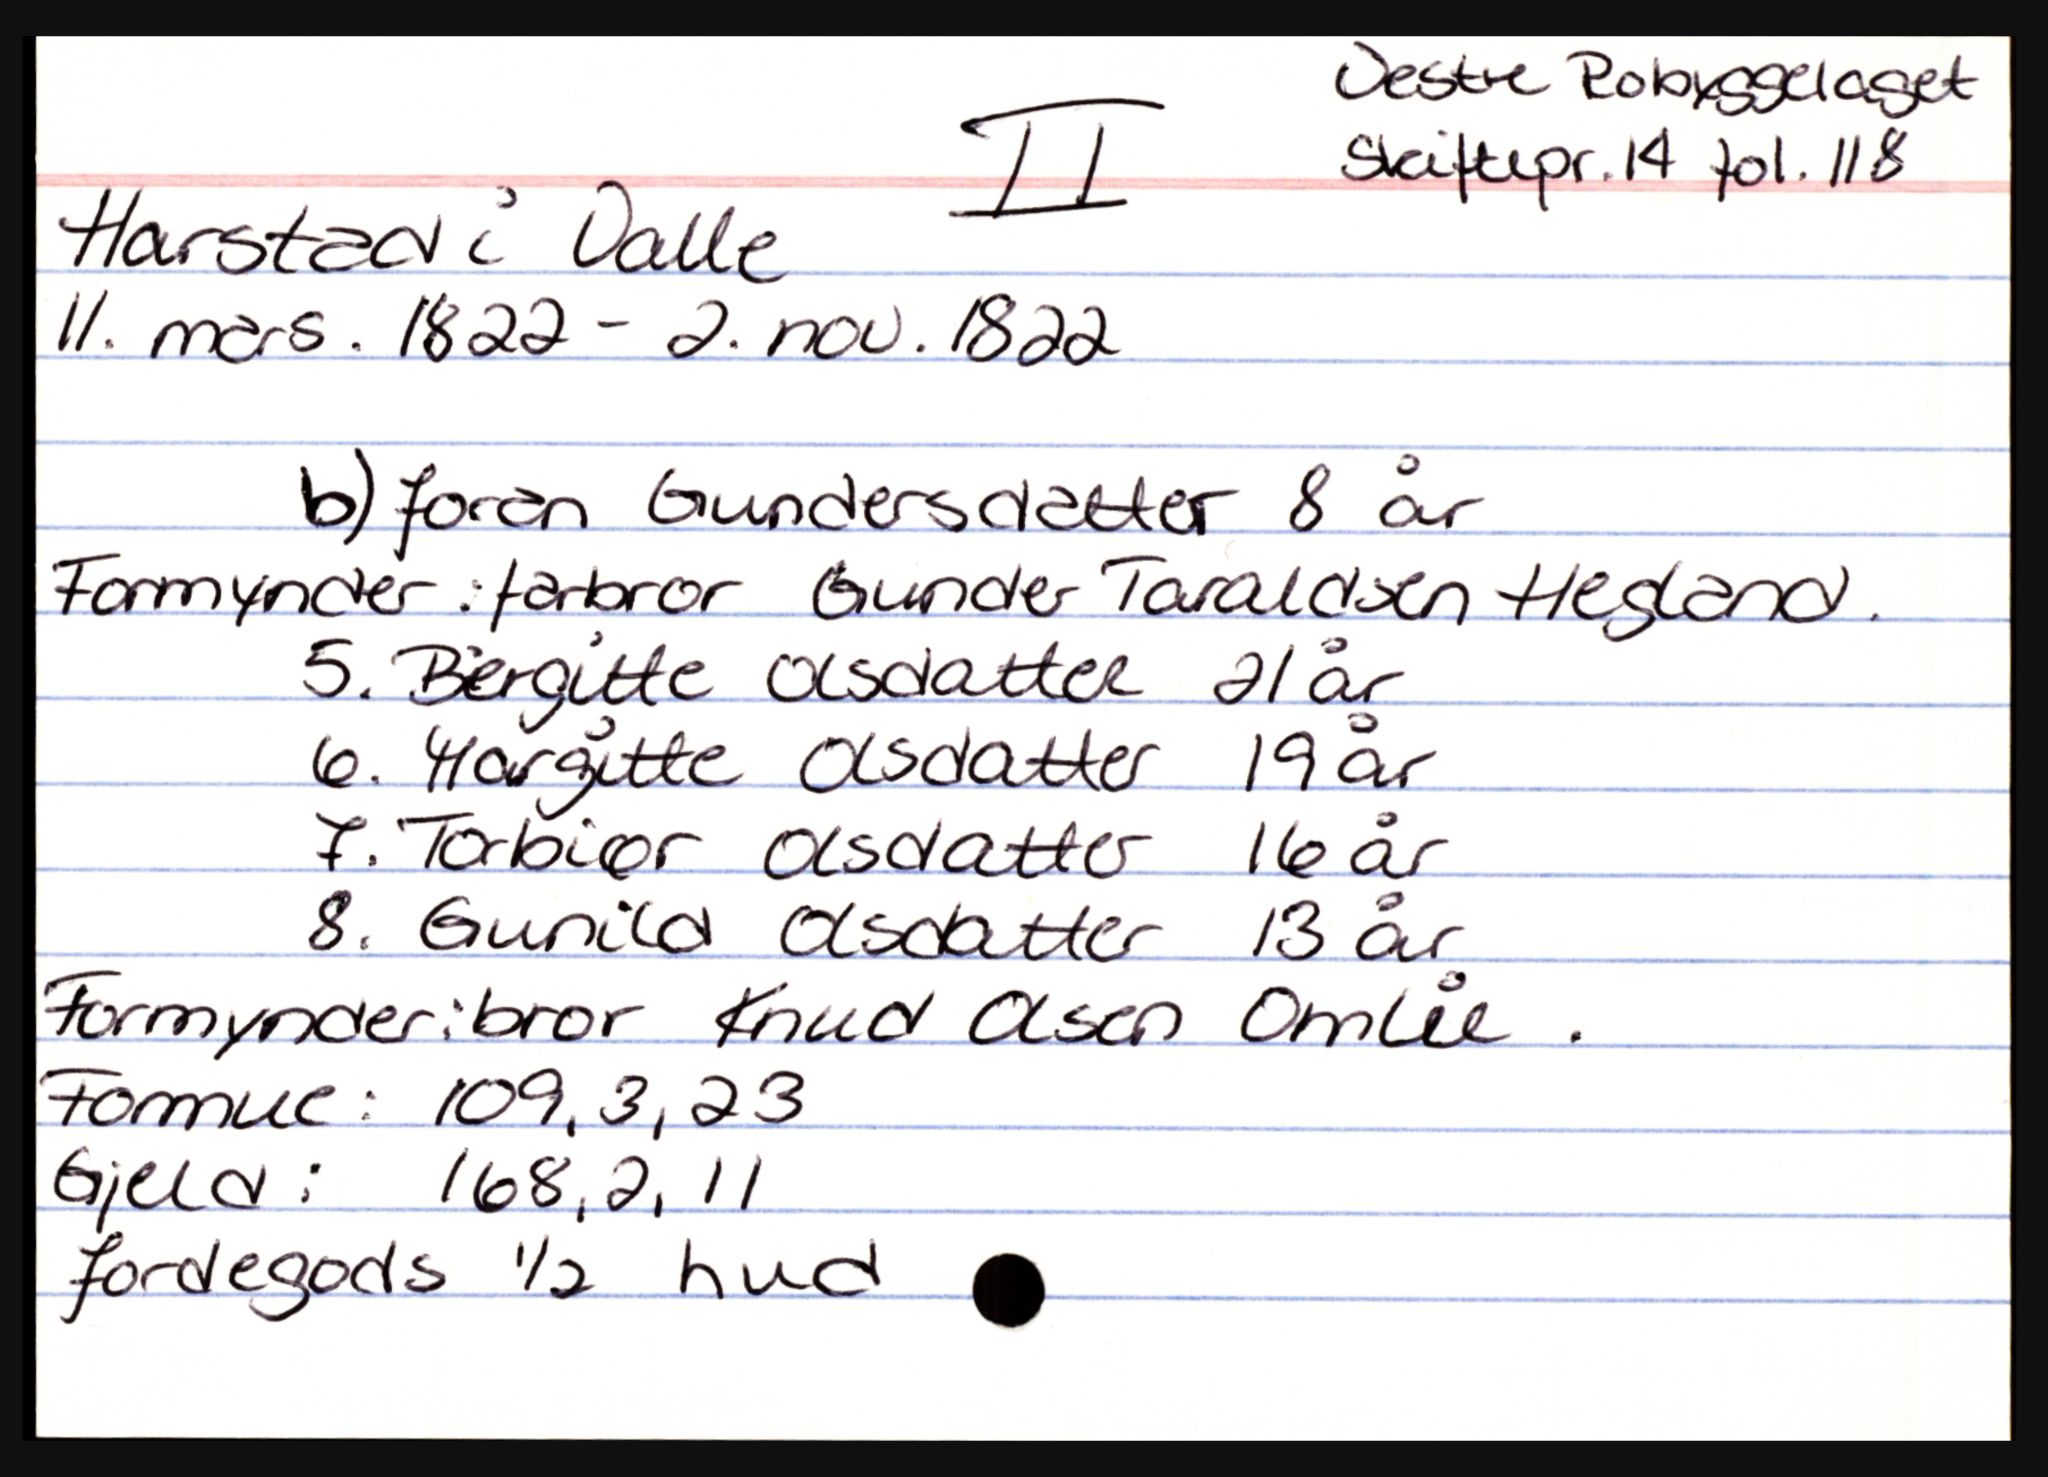 Vestre Robyggelaget
II
Skiftepr. 14 fol. 118
Harstad i Valle
11. mars. 1822 - 2. nov. 1822
b) Joran Gundersdatter 8 år
Formynder: farbror Gunder Taraldsen Hegland.
5. Bergitte Olsdatter 21 år
6. Margitte Olsdatter 19 år
7. Torbiør Olsdatter 16 år
8. Gunild Olsdatter 13 år
Formynder: bror Knud Olsen Omlie.
Formue: 109, 3, 23
Gjeld: 168, 2, 11
Jordegods 1/2 hud